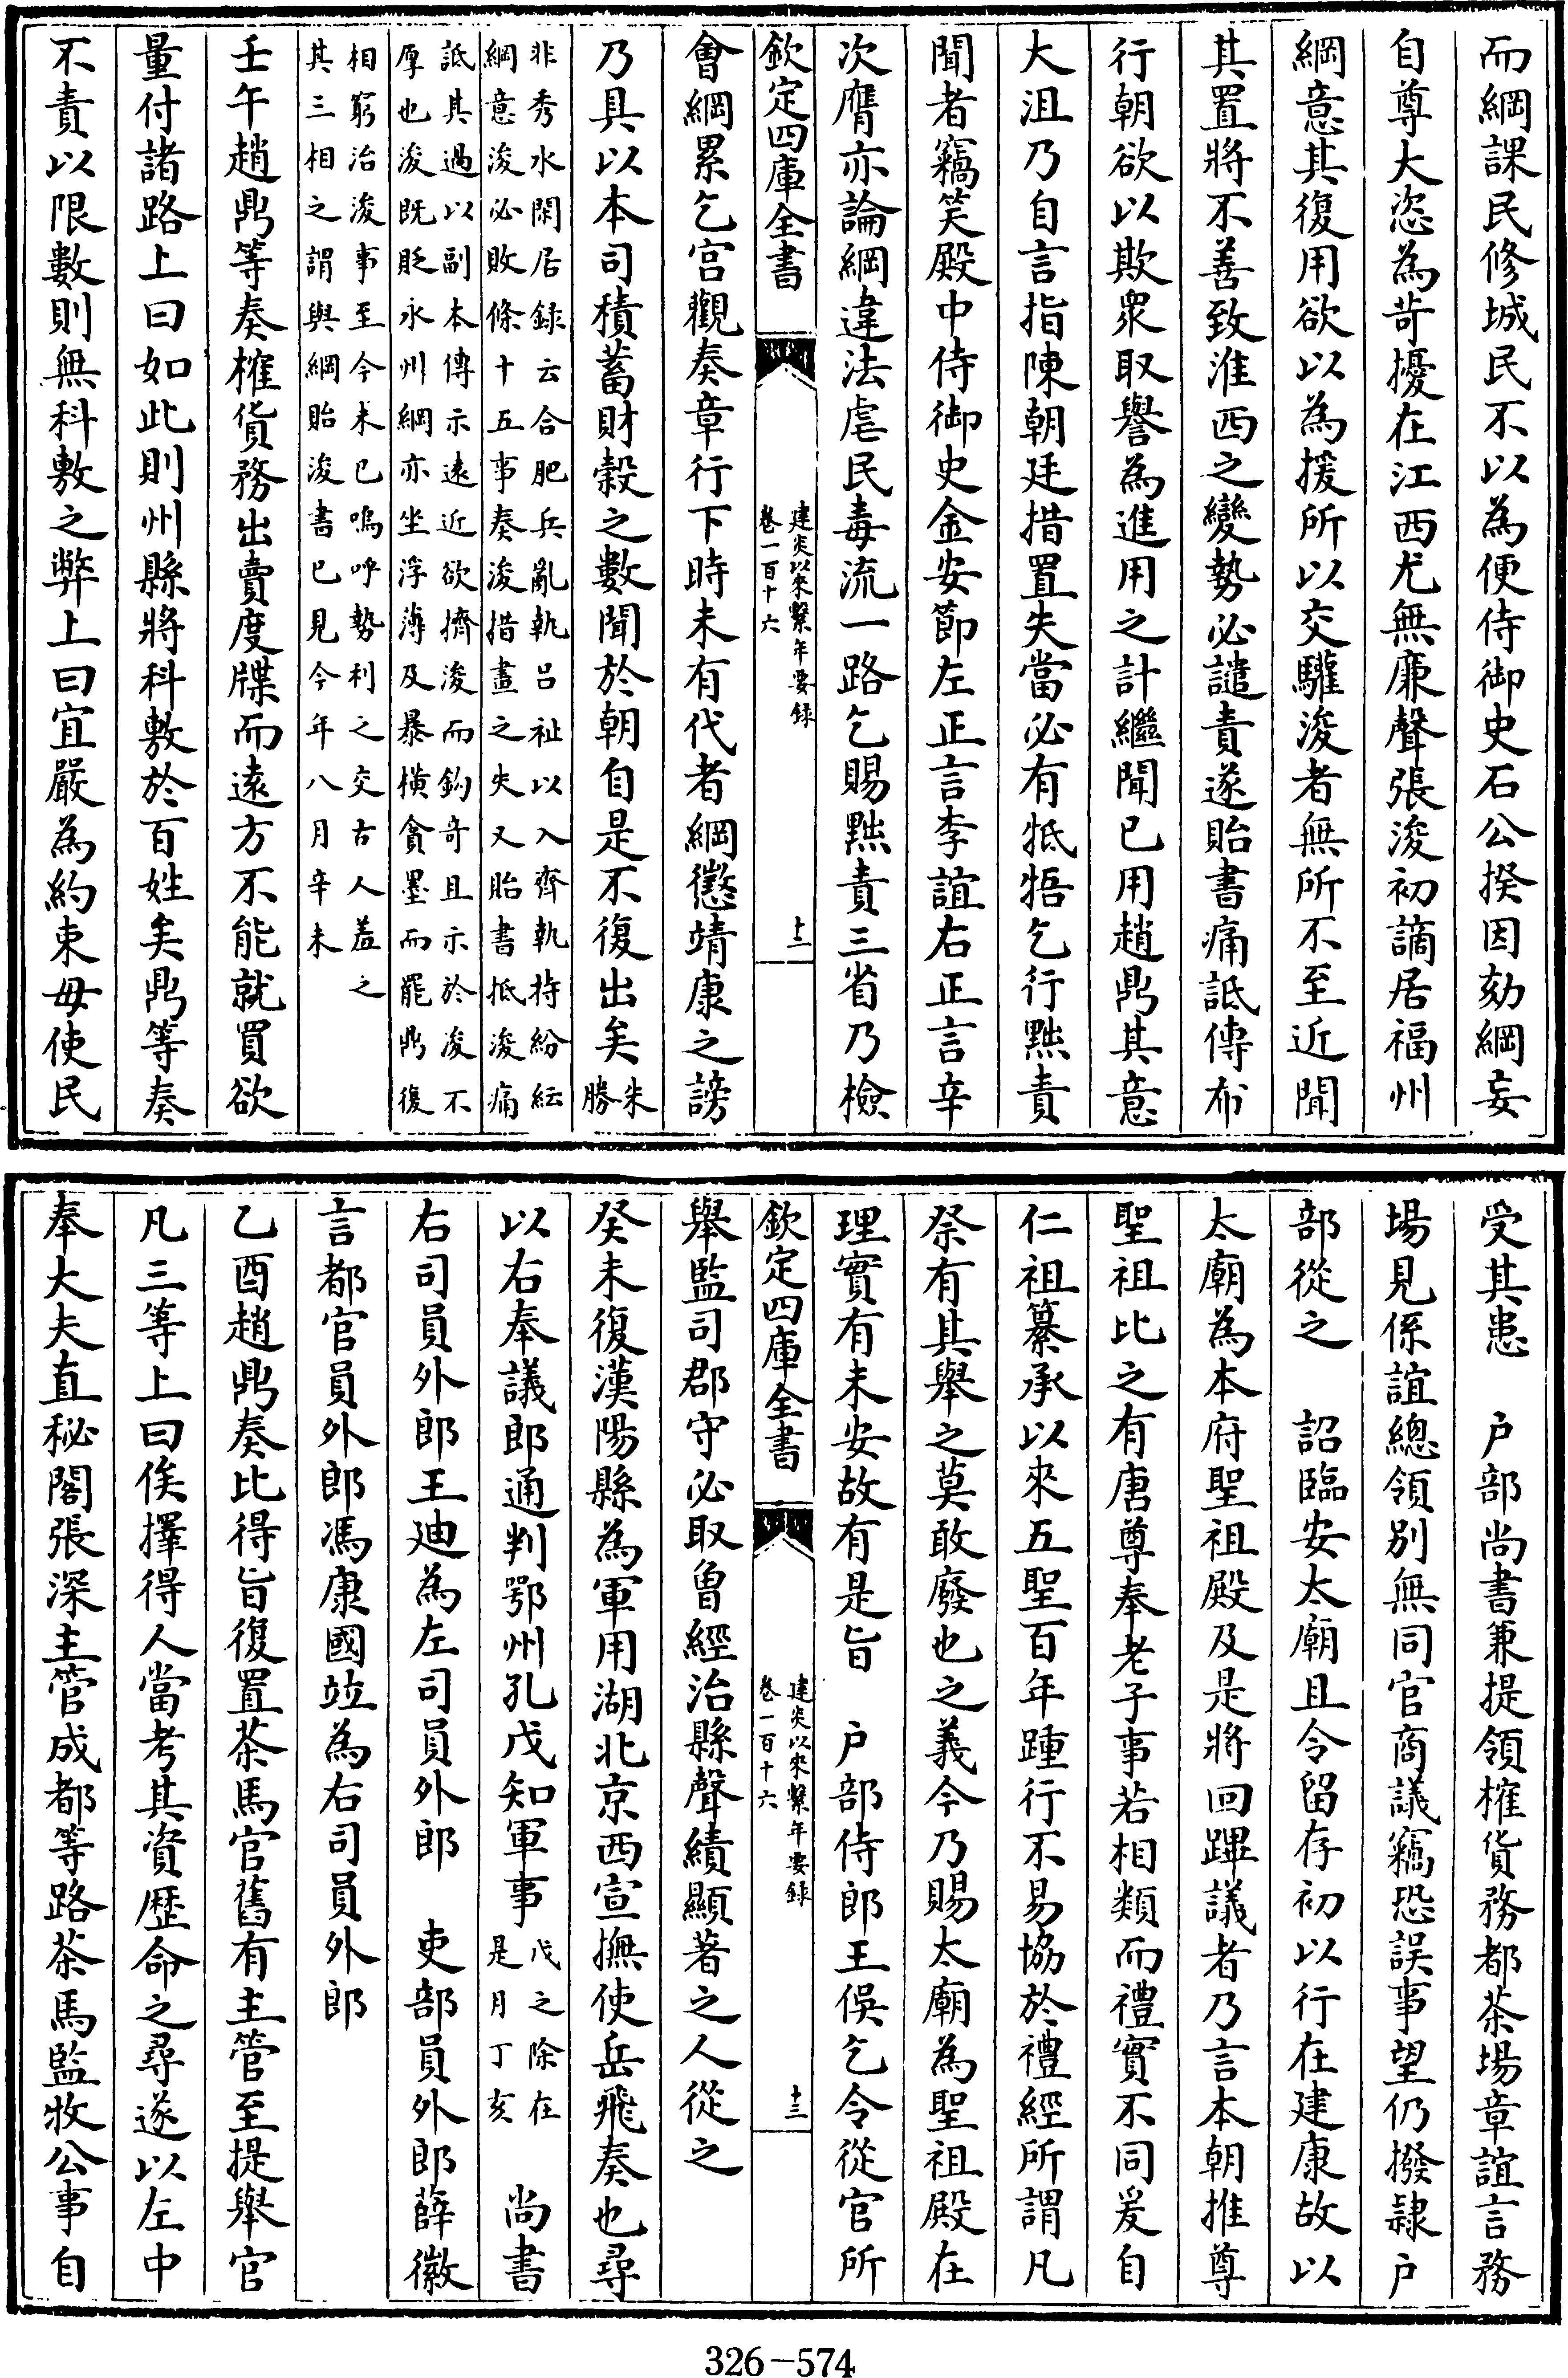 而綱課民修城民不以為便侍御史石公揆因劾綱妄
自尊大恣為苛擾在江西尤無廉聲張浚初謫居福州
綱意其復用欲以為援所以交驩浚者無所不至近聞
其置將不善致淮西之變勢必譴責遂貽書痛詆傳布
行朝欲以欺衆取譽為進用之計繼聞已用趙鼎其意
大沮乃自言指陳朝廷措置失當必有牴牾乞行黜責
聞者竊笑殿中侍御史金安節左正言李誼右正言辛
次膺亦論綱違法虐民毒流一路乞賜黜責三省乃檢
欽定四庫全書
建炎以來繫年要録
卷一百十六
十二
會綱累乞宫觀奏章行下時未有代者綱懲靖康之謗
乃具以本司積蓄財穀之數聞於朝自是不復出矣
朱
勝
非秀水閑居録云合肥兵亂執呂祉以入齊執持紛紜
綱意浚必敗條十五事奏浚措畫之失又貽書抵浚痛
詆其過以副本傳示遠近欲擠浚而鈎奇且示於浚不
厚也浚既貶永州綱亦坐浮薄及暴横貪墨而罷鼎復
相窮治浚事至今未已嗚呼勢利之交古人羞之
其三相之謂與綱貽浚書已見今年八月辛未
壬午趙鼎等奏榷貨務出賣度牒而遠方不能就買欲
量付諸路上曰如此則州縣將科敷於百姓矣鼎等奏
不責以限數則無科敷之弊上曰宜嚴為約束毋使民
受其患 户部尚書兼提領榷貨務都茶場章誼言務
場見係誼總領别無同官商議竊恐誤事望仍撥隷户
部從之 詔臨安太廟且令留存初以行在建康故以
太廟為本府聖祖殿及是將回蹕議者乃言本朝推尊
聖祖比之有唐尊奉老子事若相類而禮實不同爰自
仁祖纂承以來五聖百年踵行不易協於禮經所謂凡
祭有其舉之莫敢廢也之義今乃賜太廟為聖祖殿在
理實有未安故有是旨 户部侍郎王俁乞令從官所
欽定四庫全書
建炎以來繫年要録
卷一百十六
十三
舉監司郡守必取曾經治縣聲績顯著之人從之
癸未復漢陽縣為軍用湖北京西宣撫使岳飛奏也尋
以右奉議郎通判鄂州孔戊知軍事
戊之除在
是月丁亥
尚書
右司員外郎王迪為左司員外郎 吏部員外郎薛徽
言都官員外郎馮康國竝為右司員外郎
乙酉趙鼎奏比得旨復置茶馬官舊有主管至提舉官
凡三等上曰俟擇得人當考其資歷命之尋遂以左中
奉大夫直秘閣張深主管成都等路茶馬監牧公事自
326-574